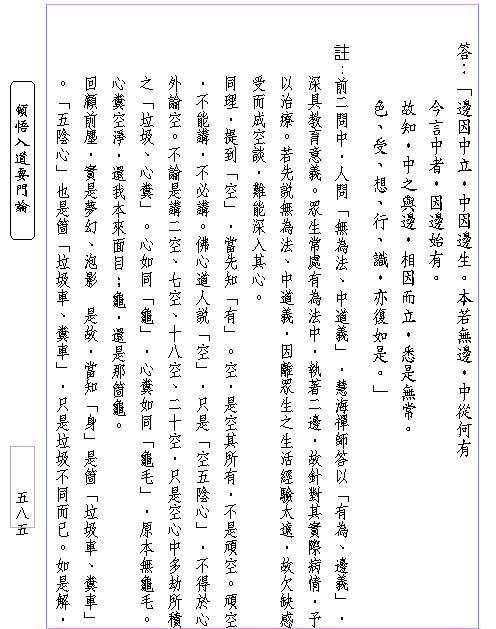 答：「邊因中立，中因邊生。本若無邊，中從何有
今言中者，因邊始有。
故知，中之與邊，相因而立，悉是無常。
色、受、想、行、識，亦復如是。」
註：前二問中，人問「無為法、中道義」，慧海禪師答以「有為、邊義」，
深具教育意義。眾生常處有為法中，執著二邊，故針對其實際病情，予
以治療。若先說無為法、中道義，因離眾生之生活經驗太遠，故欠缺感
受而成空談，難能深入其心。
同理，提到「空」，當先知「有」。空，是空其所有，不是頑空。頑空
，不能講，不必講。佛心道人說「空」，只是「空五陰心」，不得於心
外論空。不論是講二空、七空、十八空、二十空，只是空心中多劫所積
之「垃圾、心糞」。心如同「龜」，心糞如同「龜毛」，原本無龜毛。
心糞空淨，還我本來面目；龜，還是那箇龜。
回顧前塵，實是夢幻、泡影　是故，當知「身」是箇「垃圾車、糞車」
。「五陰心」也是箇「垃圾車、糞車」，只是垃圾不同而已。如是解，
頓悟入道要門論
五八五